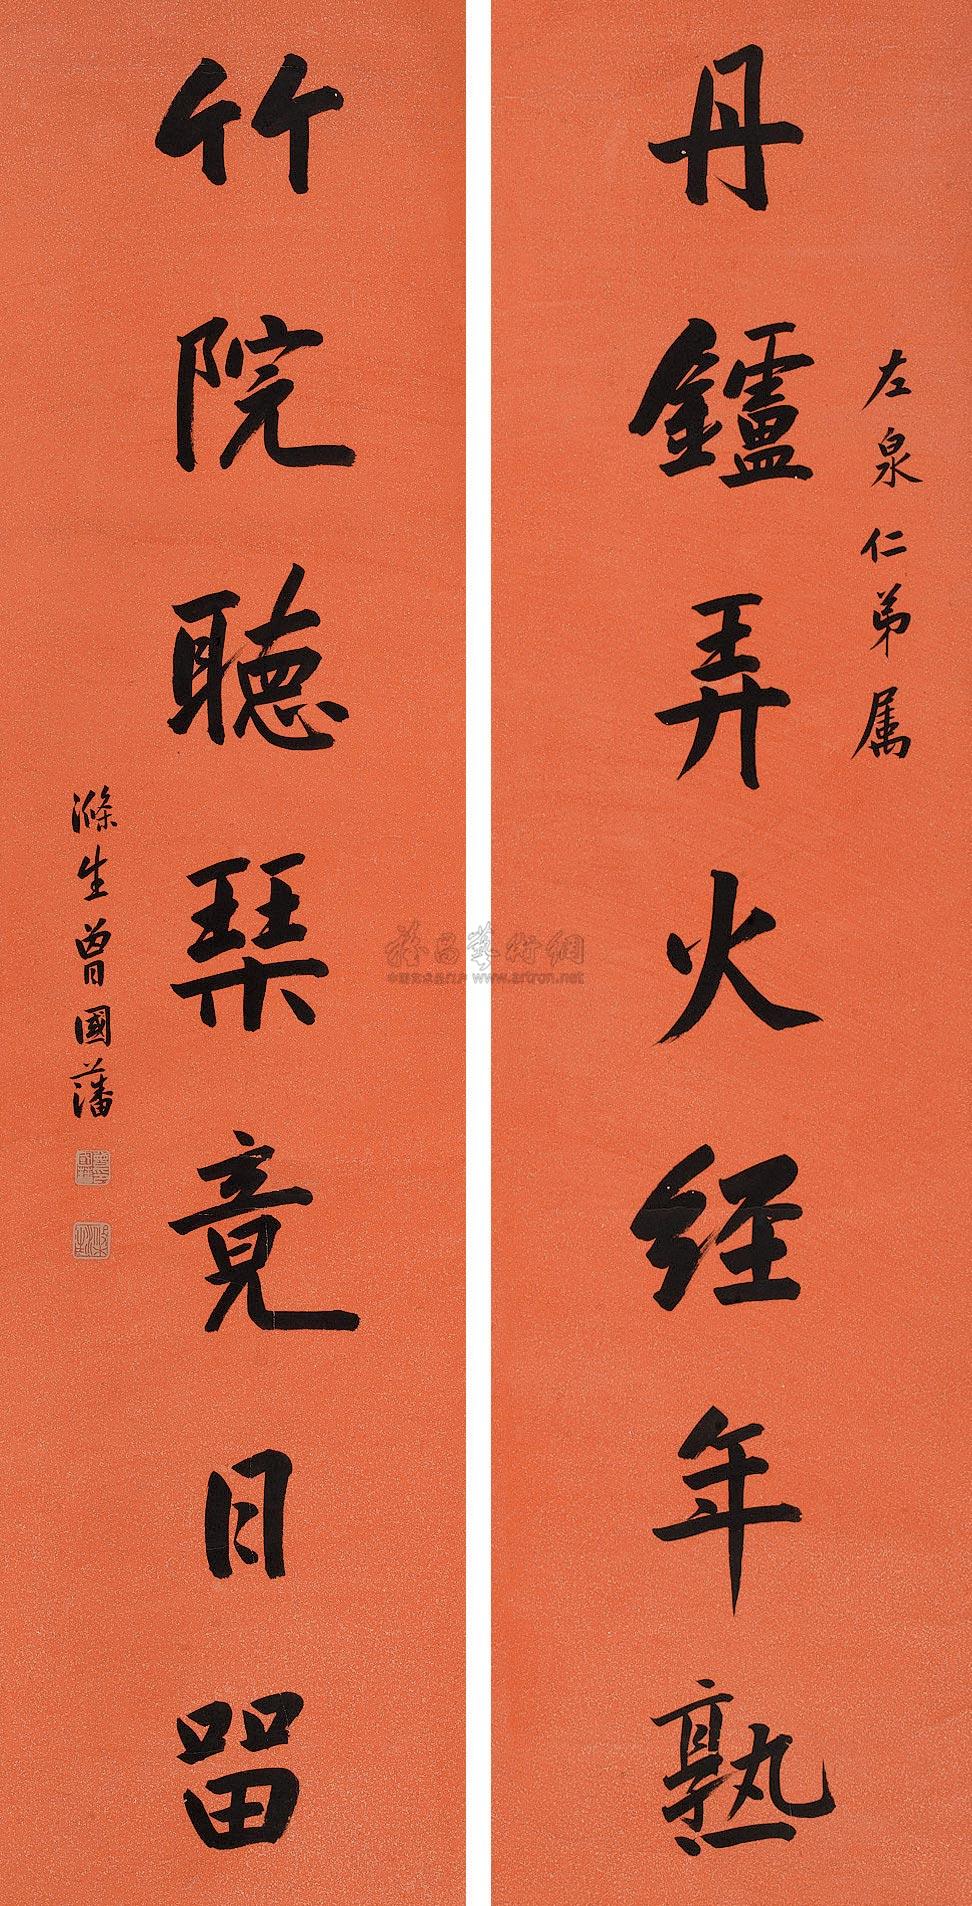 左泉仁弟屬
丹鑪弄火經年熟
竹院聽琴竟日留
滌生曾國藩
雅昌藝術網
www.artron.net